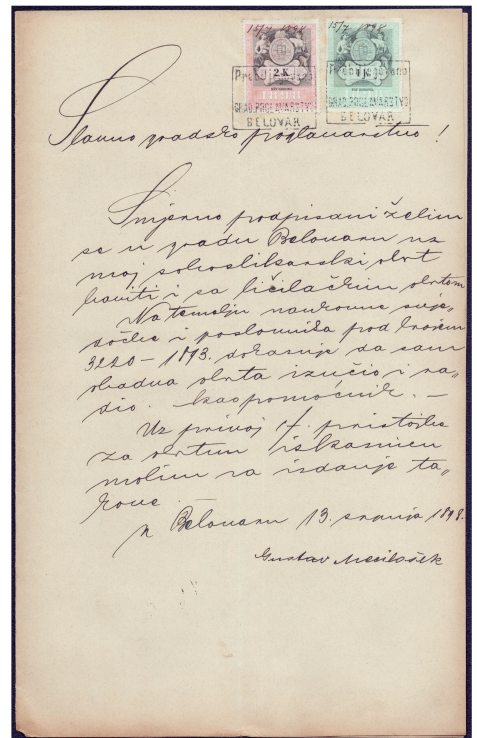 15/7 1898 15/7 1898
2 K 1 K
1898
GRAD. POGLAVARSTVO GRAD. POGLAVARSTVO
BELOVAR BELOVAR
Slavno gradsko poglavarstvo!
Smjerno podpisani želim
se u gradu Belovaru uz
moj soboslikarski obrt
baviti i sa ličilačkim obrtom
Na temelju naukovne svje-
dočbe i poslovnika pod brojem
3220 - 1893. dokazuje da sam
obadva obrta izučio i ra-
dio kao pomoćnik. —
Uz privoj 1 f. pristojbe
za obrtnu iskaznicu
molim za izdanje ta-
kove.
U Belovaru 13. srpnja 1898.
Gustav